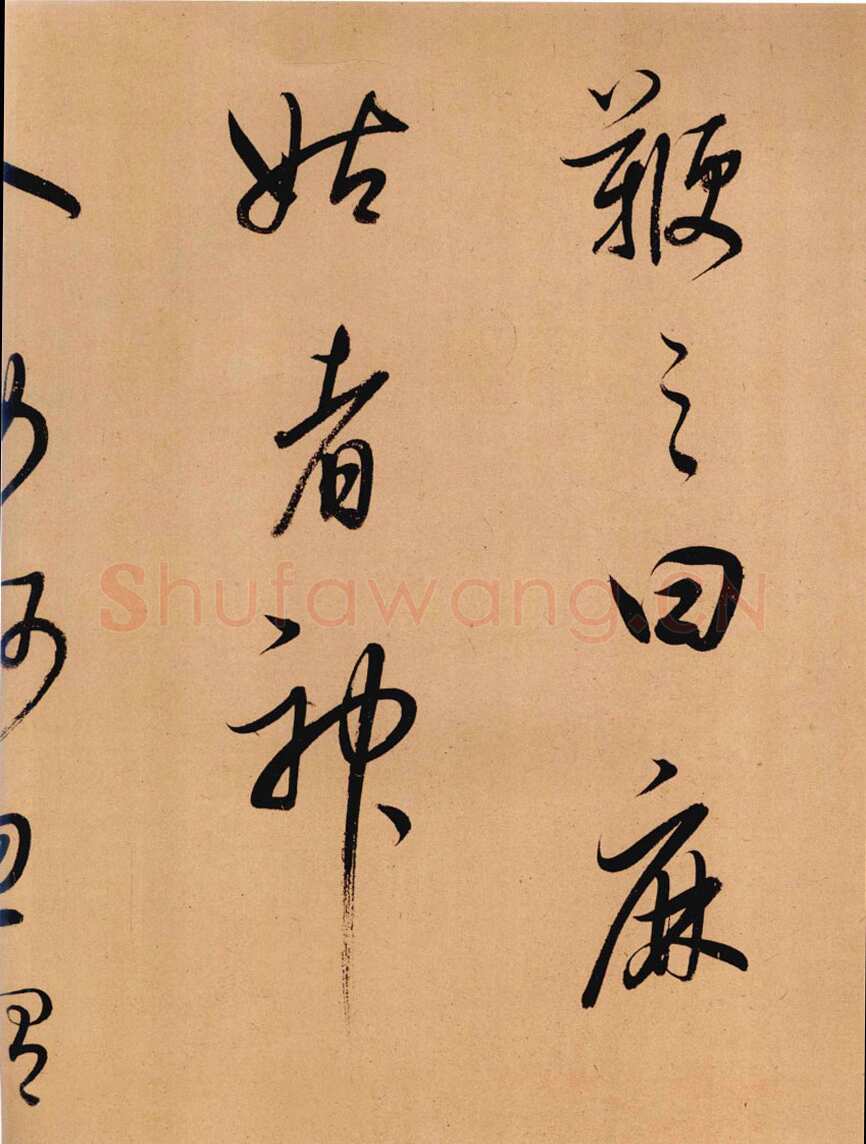 鞭之曰麻
姑者神
Shufawang.CN